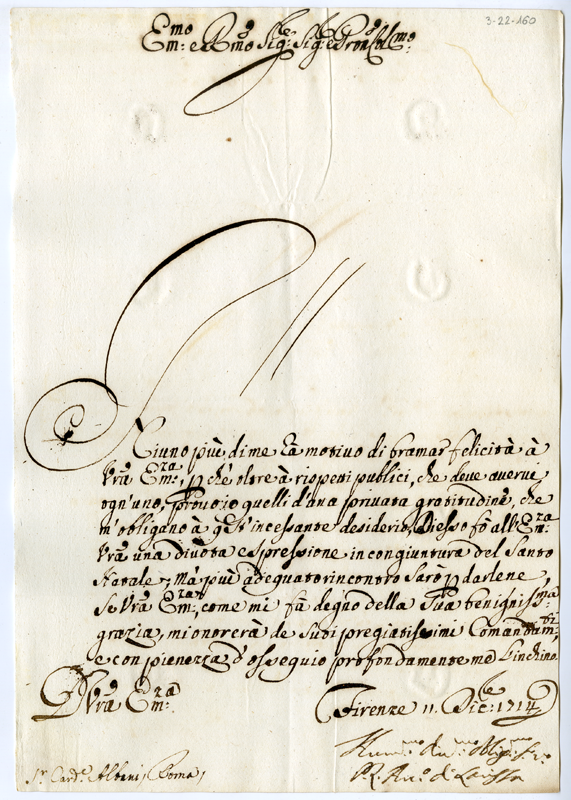 3-22-160
Emo: e Rmo Sig:re Sig:re e Pron Colmo:
Niuno più di me hà motivo di bramar felicità à
Vrã Emza:, p chè oltre à rispetti publici, che deve averne
ogn'uno, provo io quelli d'una privata gratitudine, che
m'obligano à qst'incessante desiderio. Di esso fò all'Emza:
Vrã una divota espressione in congiuntura del Santo
Natale; Mà più adequato rincontro sarò p darlene,
se Vrã Emza:, come mi fà degno della Sua benignissma:
grazia, mi onorerà de Suoi pregiatissimi Comandamti:
e con pienezza d'ossequio profondamente me l'inchino.
D Vrã Emza:
Firenze 11. Dicbre: 1714
Humo: Devmo: Obligmo: Sre
Sr. Card.e Albani, Roma,